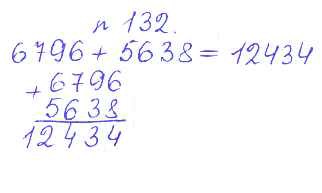 n 132.
6796 + 5638 = 12434
+ 6796
5638
12434